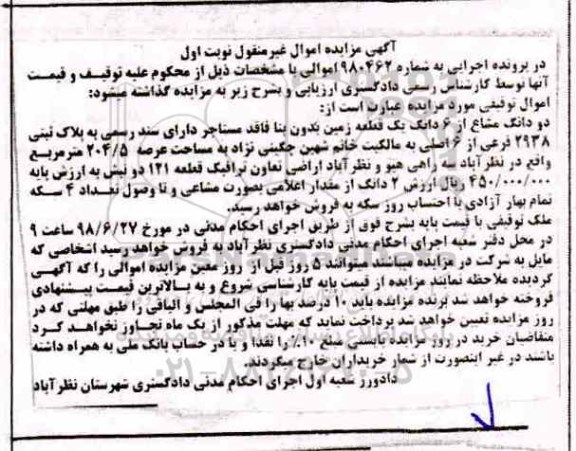 آگهی مزایده اموال غیرمنقول نوبت اول
در پرونده اجرایی به شماره ۹۸۰۴۶۲ اموالی با مشخصات ذیل از محکوم علیه توقیف و قیمت
آنها توسط کارشناس رسمی دادگستری ارزیابی و بشرح زیر به مزایده گذاشته میشود:
اموال توقیفی مورد مزایده عبارت است از:
دو دانگ مشاع از ۶ دانگ یک قطعه زمین بدون بنا فاقد مستاجر دارای سند رسمی به پلاک ثبتی
۲۹۳۸ فرعی از ۶ اصلی به مالکیت خانم شهین چگینی نژاد به مساحت عرصه ۲۰۴/۵ مترمربع
واقع در نظرآباد سه راهی هیو و نظرآباد اراضی تعاون ترافیک قطعه ۱۲۱ دو نبش به ارزش پایه
۴۵۰/۰۰۰/۰۰۰ ریال ارزش ۲ دانگ از مقدار اعلامی بصورت مشاعی و تا وصول تعداد ۴ سکه
تمام بهار آزادی با احتساب روز سکه به فروش خواهد رسید.
ملک توقیفی با قیمت پایه بشرح فوق از طریق اجرای احکام مدنی در مورخ ۹۸/۶/۲۷ ساعت ۹
در محل دفتر شعبه اجرای احکام مدنی دادگستری نظرآباد به فروش خواهد رسید اشخاصی که
مایل به شرکت در مزایده میباشند میتوانند ۵ روز قبل از روز معین مزایده اموالی را که آگهی
گردیده ملاحظه نمایند مزایده از قیمت پایه کارشناسی شروع و به بالاترین قیمت پیشنهادی
فروخته خواهد شد برنده مزایده باید ۱۰ درصد بها را فی المجلس و الباقی را طبق مهلتی که در
روز مزایده تعیین خواهد شد پرداخت نماید که مهلت مذکور از یک ماه تجاوز نخواهد کرد
متقاضیان خرید در روز مزایده بایستی مبلغ ۱۰٪ را نقدا و یا در حساب بانک ملی به همراه داشته
باشند در غیر اینصورت از شمار خریداران خارج میگردند.
دادورز شعبه اول اجرای احکام مدنی دادگستری شهرستان نظرآباد